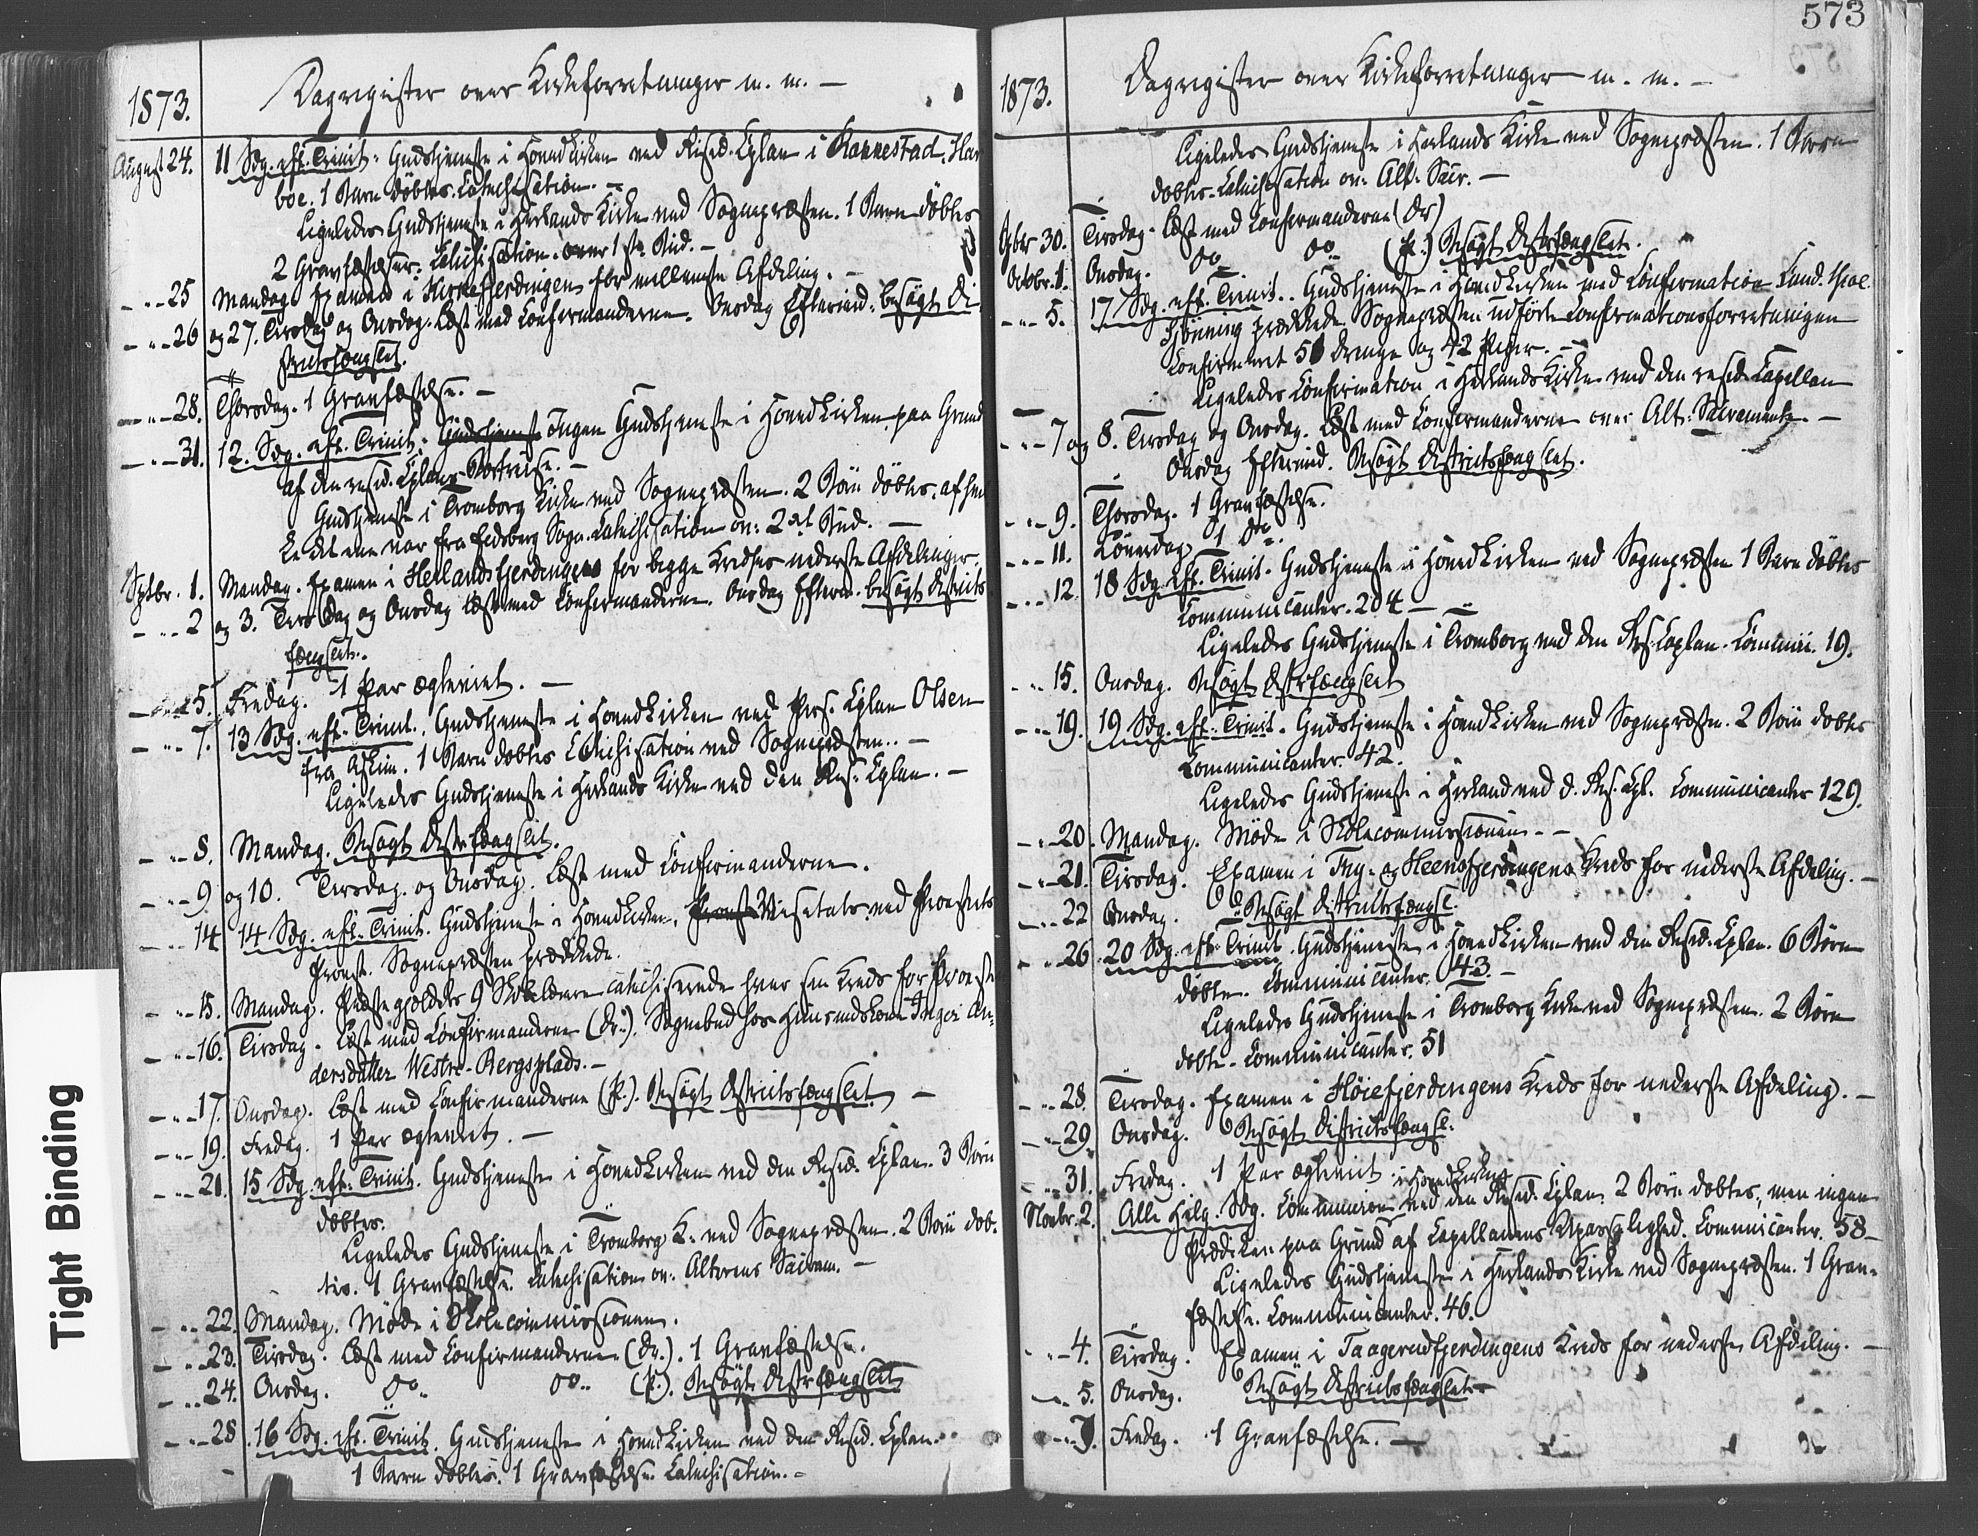 1873.
Dagregister over Kirkeforretninger m. m. —
August 24. 11 Sdg. eft. Trinit. Gudstjeneste i Hovedkirken ved Resid. Cplan i Rakkestad, Har
boe. 1 Barn døbtes. Catechisation. —
Ligeledes Gudstjeneste i Herlands Kirke ved Sognepræsten. 1 Barn døbtes
2 Gravfæstelser. Catechisation over 1ste Bud. —
— „ — 25 Mandag. Examen i fjerdingen for mellemste Afdeling. —
— „ — 26 og 27. Tirsdag og Onsdag. Læst med Confirmanderne. Onsdag Eftermid. besøgt Di
strictsfængslet.
— „ — 28. Thorsdag. 1 Gravfæstelse. —
— „ — 31. 12. Sdg. eft. Trinit. Gudstjeneste Ingen Gudstjeneste i Hovedkirken paa Grund
af den resid. Cplans Bortreise. —
Gudstjeneste i Tromborg Kirke ved Sognepræsten. 2 Børn døbtes, af hvil
ke det ene var fra Eidsberg Sogn. Catechisation ov: 2det Bud. —
Sptbr. 1. Mandag. Examen i Herlandsfjerdingen for begge Kredses nederste Afdelinger.
— „ — 2 og 3. Tirsdag og Onsdag læst med Confirmanderne. Onsdag Efterm. besøgt Districts
fængslet.
— „ — 5. Fredag. 1 Par ægteviet. —
— „ — 7. 13 Sdg. eft. Trinit. Gudstjeneste i Hovedkirken ved Pers. Cplan Olsen
fra Askim. 1 Barn døbtes Catechisation ved Sognepræsten. —
Ligeledes Gudstjeneste i Herlands Kirke ved den Res. Cplan. —
— „ — 8. Mandag. Besøgt Distrfængslet.
— „ — 9 og 10. Tirsdag og Onsdag. Læst med Confirmanderne.
— „ — 14 14 Sdg. eft. Trinit. Gudstjeneste i Hovedkirken. Visitats ved Provstiets
Provst. Sognepræsten prædikede.
— „ — 15. Mandag. Præstegjældets 9 Skolelærere catechiserede hver sin Kreds for Provsten
— „ — 16. Tirsdag. Læst med Confirmanderne (Dr.). Sognebud hos Huusmandskone Inger An-
dersdatter Westre-Bergsplads. —
— „ — 17. Onsdag. Læst med Confirmanderne (P.). Besøgt Districtsfængslet —
— „ — 19. Fredag. 1 Par ægteviet. —
— „ — 21. 15 Sdg. eft. Trinit. Gudstjeneste i Hovedkirken ved den Resid. Cplan. 3 Børn
døbtes.
Ligeledes Gudstjeneste i Tromborg K. ved Sognepræsten. 2 Børn døb-
tes. 1 Gravfæstelse. Catechisation ov: Alterens Sacram. —
— „ — 22. Mandag. Møde i Skolecommissionen.
— „ — 23. Tirsdag. Læst med Confirmanderne (Dr.). 1 Gravfæstelse.
— „ — 24. Onsdag. Do Do (P.). Besøgt Distrfængslet
— „ — 28. 16 Sdg. eft. Trinit. Gudstjeneste i Hovedkirken ved den Resid. Cplan.
1 Barn døbtes. 1 Gravfæstelse. Catechisation. —
573
1873.
Dagregister over Kirkeforretninger m. m. —
Ligeledes Gudstjeneste i Herlands Kirke ved Sognepræsten. 1 Barn
døbtes. Catechisation ov: Alt: Sacr. —
Sptbr 30. Tirsdag. Læst med Confirmanderne (Dr)
Octobr. 1. Onsdag. Do Do (P.) Besøgt Distrfængslet.
— „ — 5. 17 Sdg. eft. Trinit. Gudstjeneste i Hovedkirken med Confirmation Cand. theol.
prædikede. Sognepræsten udførte Confirmationsforretningen
Confirmeret 51 Drenge og 42 Piger. —
Ligeledes Confirmation i Herlands Kirke ved den resid. Capellan
— „ — 7 og 8. Tirsdag og Onsdag. Læst med Confirmanderne over Alt: Sacramente. —
Onsdag Eftermid. Besøgt Districtsfængslet.
— „ — 9. Thorsdag. 1 Gravfæstelse.
— „ — 11. Løverdag 1 Do.
— „ — 12. 18 Sdg. eft. Trinit. Gudstjeneste i Hovedkirken ved Sognepræsten 1 Barn døbtes
Communicanter. 204 —
Ligeledes Gudstjeneste i Tromborg ved den Res: Caplan. Commun. 19.
— „ — 15. Onsdag. Besøgt Distrfængslet
— „ — 19. 19 Sdg. eft. Trinit. Gudstjeneste i Hovedkirken ved Sognepræsten. 2 Børn døbtes
Communicanter. 42.
Ligeledes Gudstjeneste i Herland ved d. Res. Cpl. Communicanter 129.
— „ — 20. Mandag. Møde i Skolecommissionen. —
— „ — 21. Tirsdag. Examen i Fry- og Heensfjerdingens Kreds for nederste Afdeling. —
— „ — 22 Onsdag. Besøgt Districtsfængsl.
— „ — 26. 20 Sdg. eft. Trinit. Gudstjeneste i Hovedkirken ved den Resid. Cplan. 6 Børn
døbte. Communicanter. 43. —
Ligeledes Gudstjeneste i Tromborg Kirke ved Sognepræsten. 2 Børn
døbte. Communicanter. 51
— „ — 28. Tirsdag. Examen i Høiefjerdingens Kreds for nederste Afdeling. —
— „ — 29. Onsdag. Besøgt Districtsfængsl.
— „ — 31. Fredag. 1 Par ægteviet i Hovedkirken
Novbr. 2. Alle Helg. Sdg. Communion ved den Resid. Cplan. 2 Børn døbtes, men ingen
Prædiken paa Grund af Capellanens Upasselighed. Communicanter. 58 —
Ligeledes Gudstjeneste i Herlands Kirke ved Sognepræsten. 1 Grav-
fæstelse. Communicanter. 46.
— „ — 4. Tirsdag. Examen i Taagerudfjerdingens Kreds for nederste Afdeling. —
— „ — 5. Onsdag. Besøgt Districtsfængslet —
— „ — 7. Fredag. 1 Gravfæstelse. —
Tight Binding